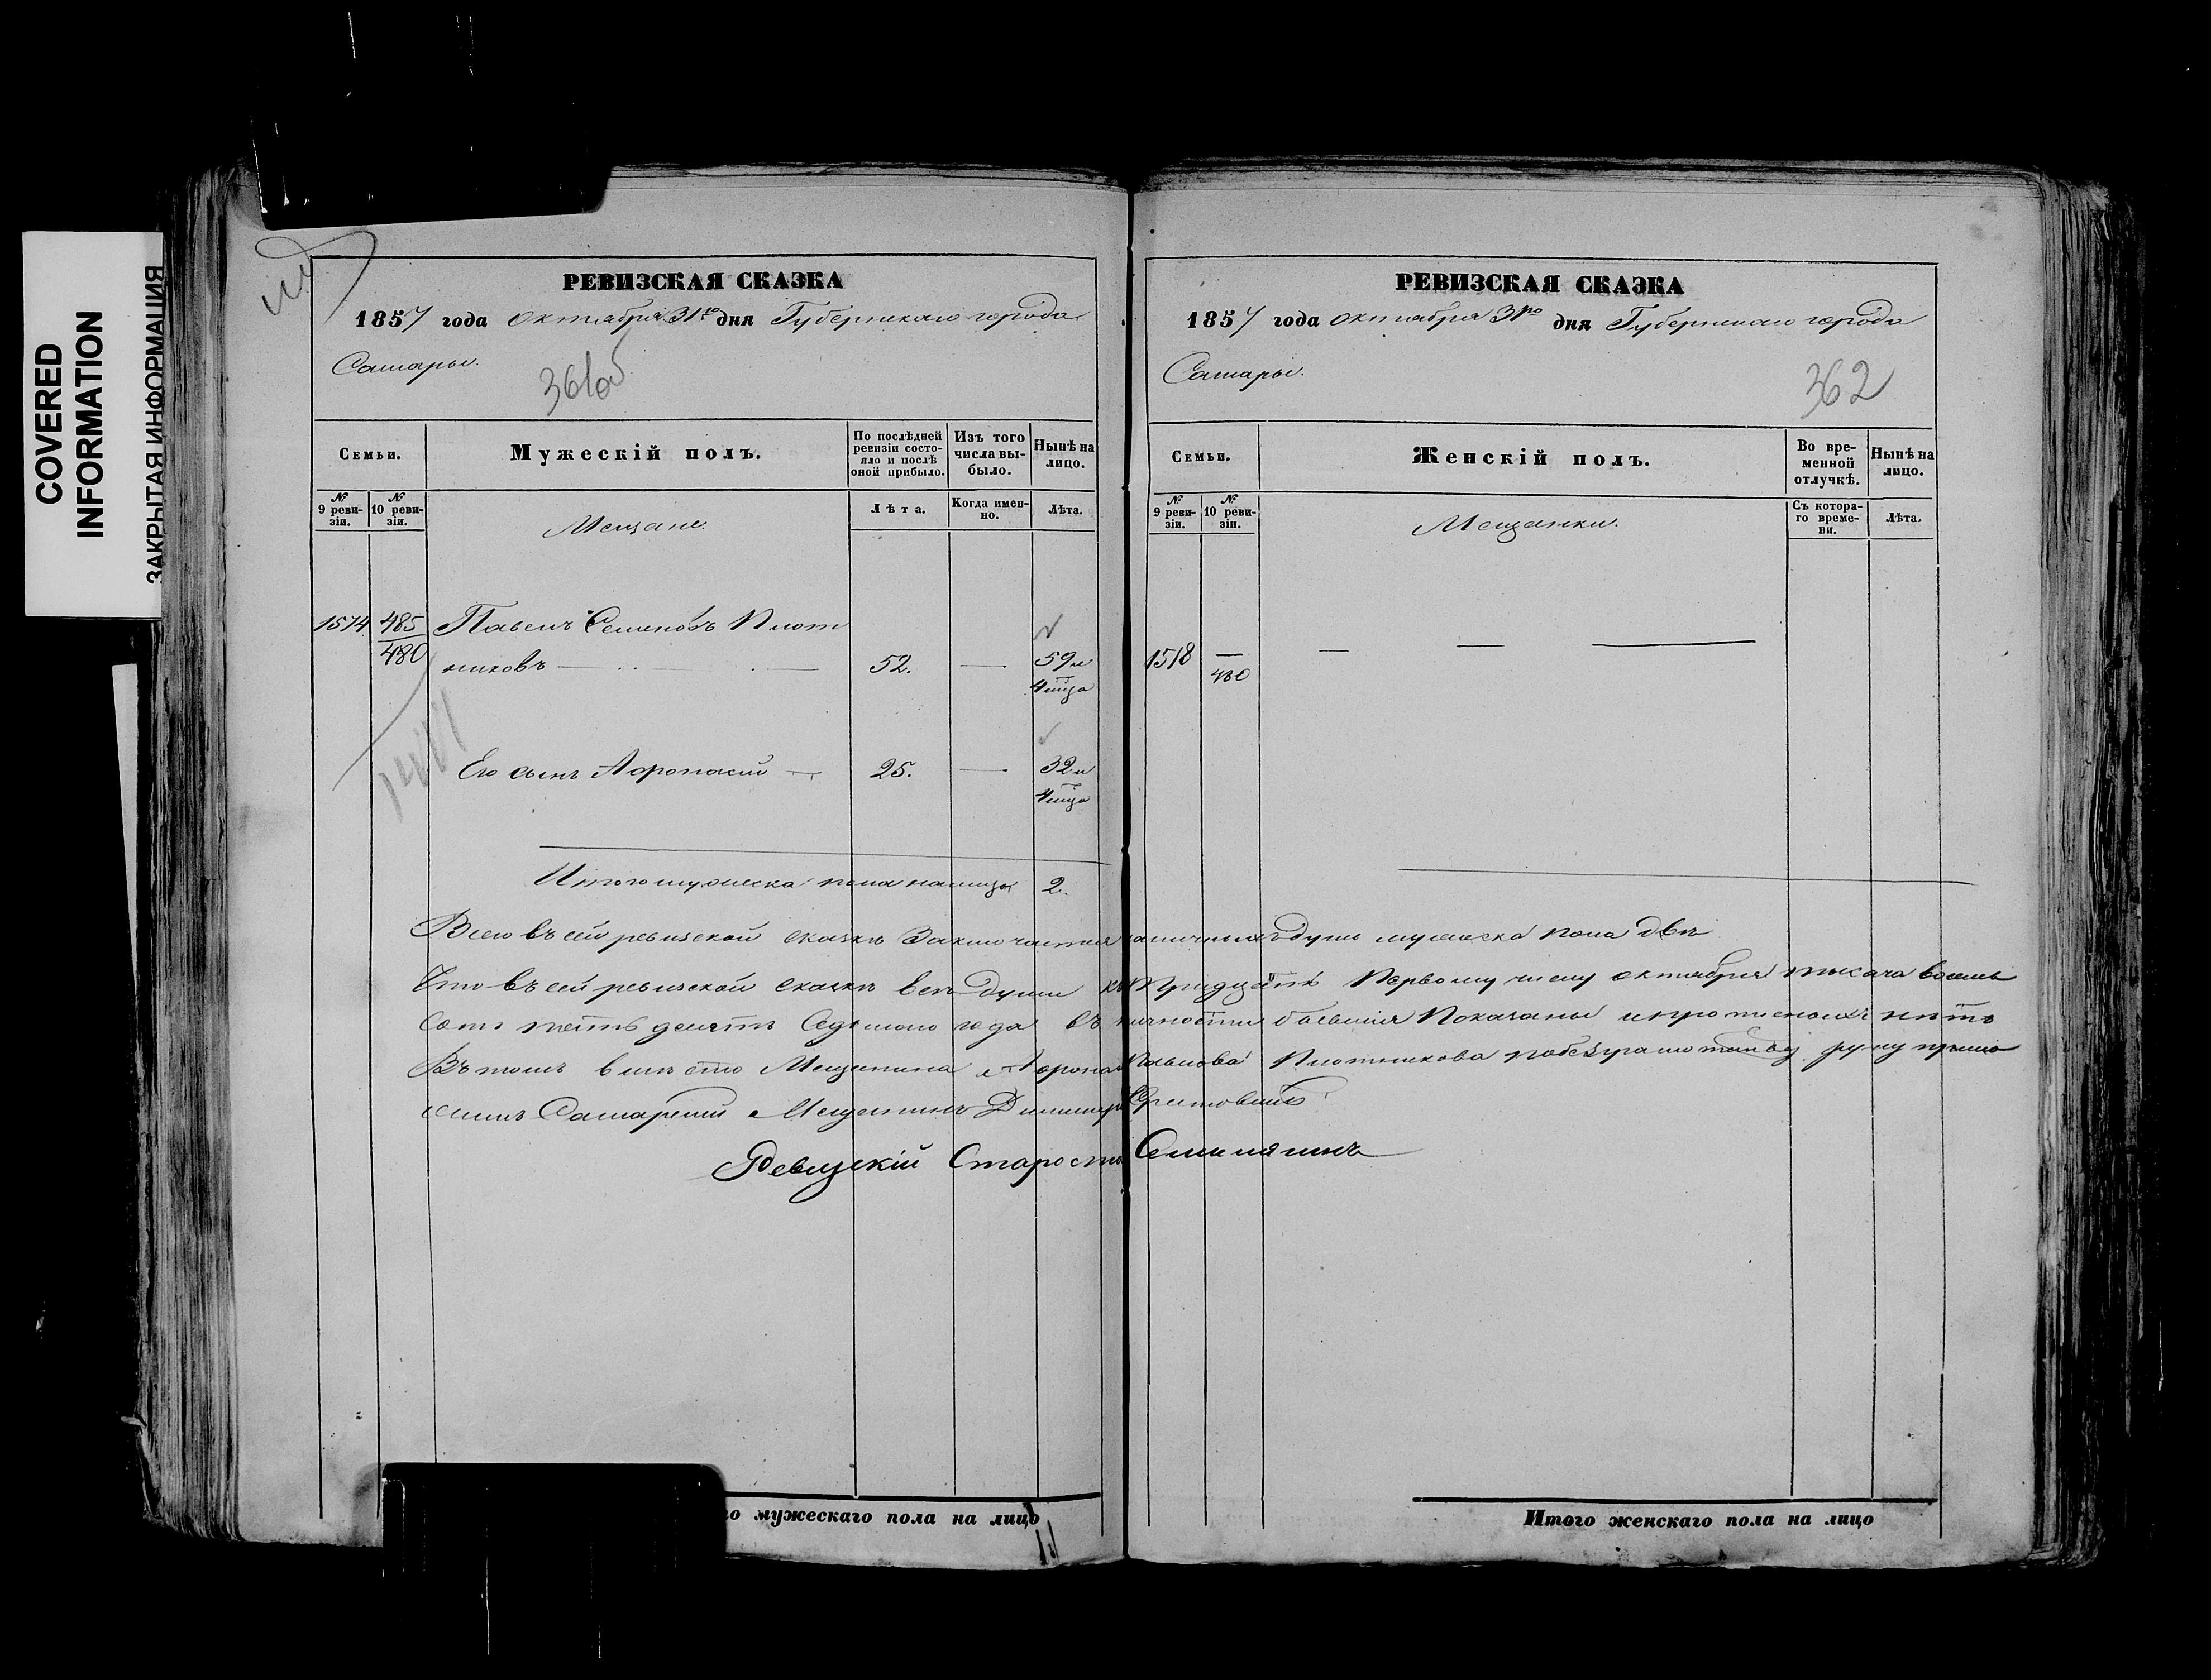 COVERED
INFORMATION
ЗАКРЫТАЯ ИНФОРМАЦИЯ
РЕВИЗСКАЯ СКАЗКА
1857 года октября 31го дня Губернскаго города
Самары.
361об
Семьи.
Мужескій полъ.
По послѣдней ревизіи состояло и послѣ оной прибыло.
Изъ того числа выбыло.
Нынѣ на лицо.
№ 9 ревизіи.
№ 10 ревизіи.
Мещане.
Лѣта.
Когда именно.
Лѣта.
1574 485 Павелъ Семеновъ Плот
480 никовъ — 52. — 59 и
4 мца
Его сынъ Афонасий — 25. — 32 и
4 мца
Итого мужеска пола налицо 2.
РЕВИЗСКАЯ СКАЗКА
1857 года октября 31го дня Губернскаго города
Самары.
362
Семьи.
Женскій полъ.
Во временной отлучкѣ.
Нынѣ на лицо.
№ 9 ревизіи.
№ 10 ревизіи.
Мещанки.
Съ котораго времени.
Лѣта.
1518 — — — —
480
Всего въ сей ревизской сказкѣ Заключается наличныхъ душъ мужеска пола двѣ
Что въ сей ревизской сказкѣ всѣ души къ тридцать Первому числу октября тысяча восемь
сотъ пять десятъ Седьмого года въ личности бывшия Показаны и прописныхъ нѣтъ
Въ томъ вместо Мещанина Афонас Павлова Плотникова
Самарский Мещанинъ
Ревизскій Староста
го мужескаго пола на лицо
Итого женскаго пола на лицо